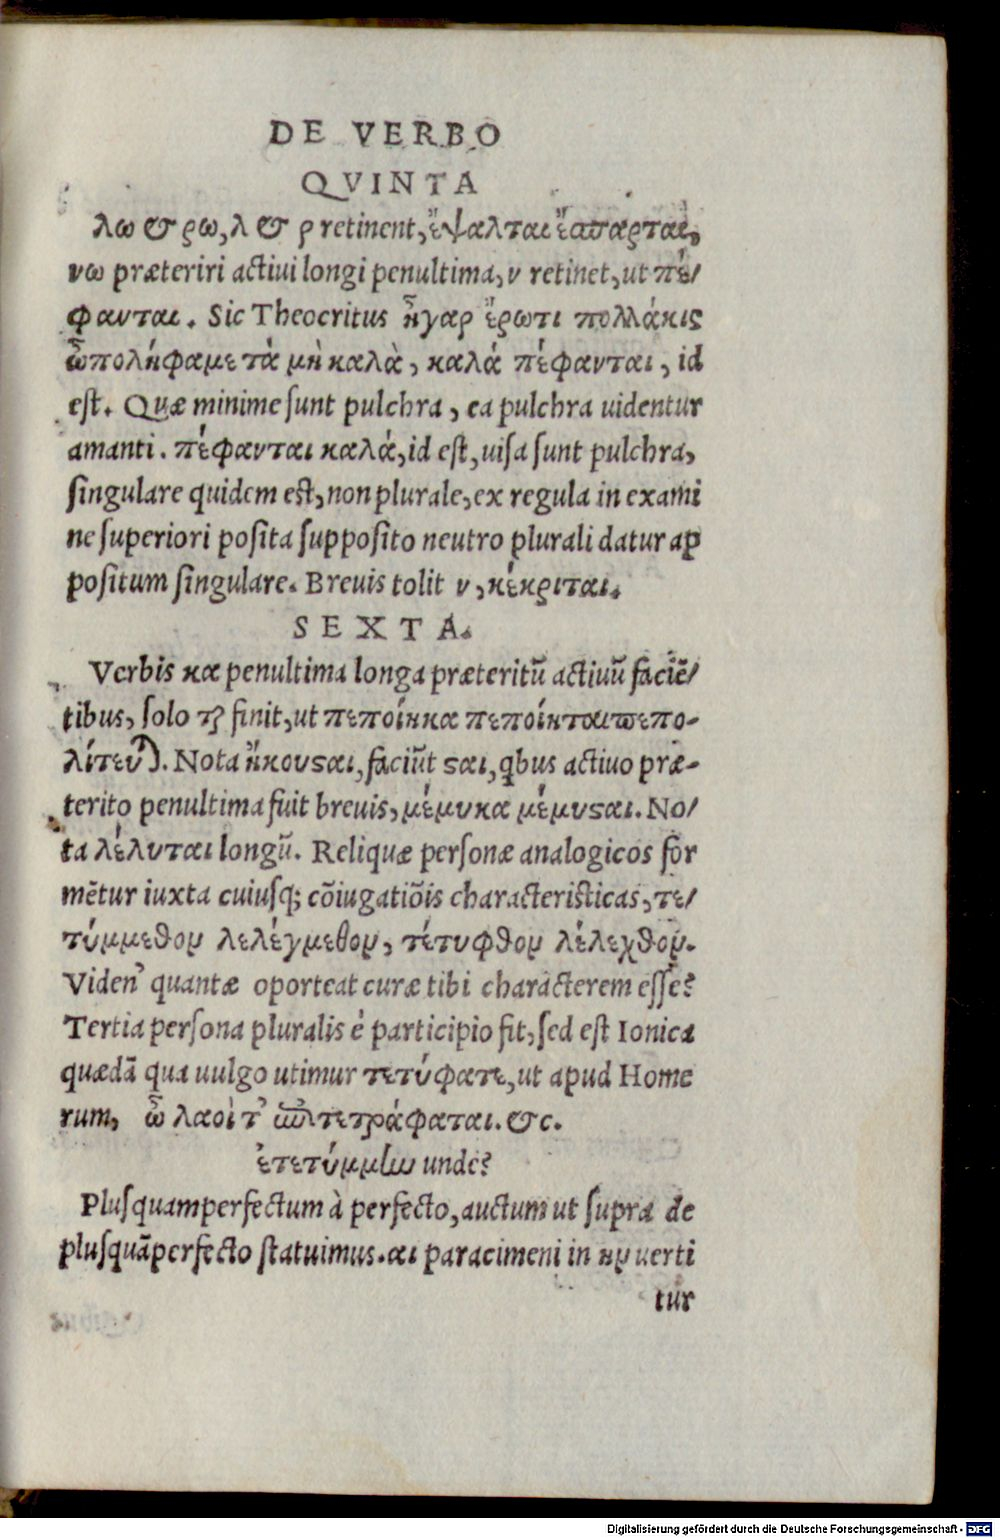 DE VERBO
QVINTA
λω & ρω, λ & ρ retinent, ἔψαλται ἔσπαρται,
νω præteriri actiui longi penultima, ν retinet, ut πέ/
φανται. Sic Theocritus ἦγαρ ἔρωτι πολλάκις
ὦπολήφαμε τὰ μὴ καλὰ, καλά πέφανται, id
est. Quæ minime sunt pulchra, ea pulchra uidentur
amanti. πέφανται καλά, id est, uisa sunt pulchra,
singulare quidem est, non plurale, ex regula in exami
ne superiori posita supposito neutro plurali datur ap
positum singulare. Breuis tolit ν, κέκριται.
SEXTA.
Verbis κα penultima longa præteritū actiuū faciē/
tibus, solo ται finit, ut πεποίηκα πεποίηται πεπο-
λίτευται. Nota ἤκουσαι, faciūt σαι, qbus actiuo præ-
terito penultima fuit breuis, μέμυκα μέμυσαι. No/
ta λέλυται longū. Reliquæ personæ analogicos for
mētur iuxta cuiusq; cōiugatiōis characteristicas, τε/
τύμμεθον λελέγμεθον, τέτυφθον λέλεχθον.
Viden' quantæ oporteat curæ tibi characterem esse?
Tertia persona pluralis é participio fit, sed est Ionica
quædā qua uulgo utimur τετύφατε, ut apud Home
rum, ὦ λαοὶ τ' τετράφαται. &c.
ἐτετύμμην unde?
Plusquamperfectum à perfecto, auctum ut supra de
plusquāperfecto statuimus. αι paracimeni in ην uerti
tur
Digitalisierung gefördert durch die Deutsche Forschungsgemeinschaft - DFG